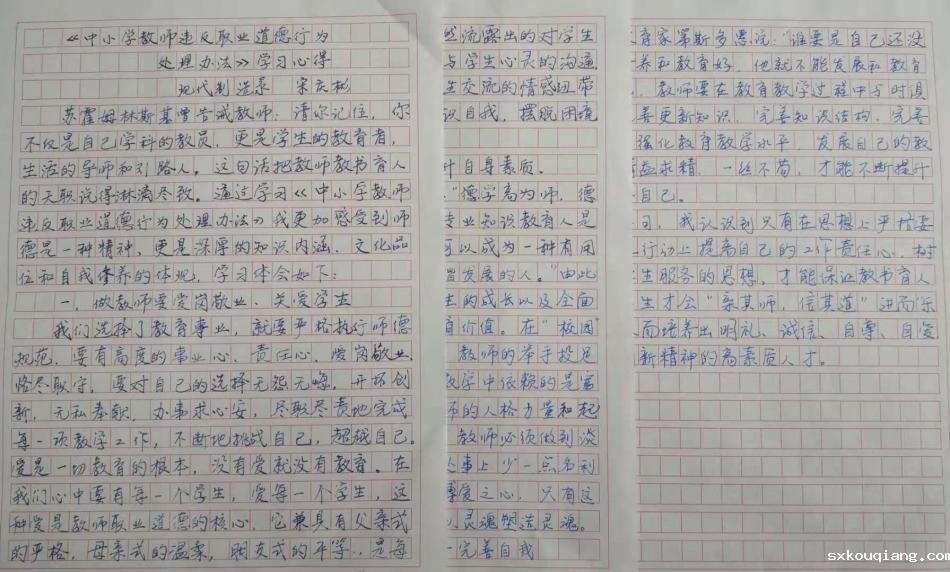 《中小学教师违反职业道德行为
处理办法》学习心得
现代制造系 宋庆彬
苏霍姆林斯基曾告诫教师：请你记住，你
不仅是自己学科的教员，更是学生的教育者，
生活的导师和引路人。这句话把教师教书育人
的天职说得淋漓尽致。通过学习《中小学教师
违反职业道德行为处理办法》我更加感受到师
德是一种精神，更是深厚的知识内涵、文化品
位和自我修养的体现，学习体会如下：
一、做教师要爱岗敬业、关爱学生
我们选择了教育事业，就要严格执行师德
规范，要有高度的事业心、责任心，爱岗敬业、
恪尽职守。要对自己的选择无怨无悔，开拓创
新，无私奉献，办事求心安，尽职尽责地完成
每一项教学工作，不断地挑战自己，超越自己。
爱是一切教育的根本，没有爱就没有教育。在
我们心中要有每一个学生，爱每一个学生，这
种爱是教师职业道德的核心，它兼具有父亲式
的严格，母亲式的温柔，朋友式的平等，是每
然流露出的对学生
与学生心灵的沟通
生交流的情感纽带
识自我，摆脱困境
升自身素质。
"德学高为师，德
专业知识教育人是
可以成为一种有用
发展的人。"由此
生的成长以及全面
价值。在"校园
教师的举手投足
教学中依赖的是富
师的人格力量和起
教师必须做到淡
事上少一点名利
博爱之心，只有这
以灵魂塑造灵魂。
完善自我
育家第斯多惠说："谁要是自己还没
养和教育好，他就不能发展和教育
，教师要在教育教学过程中与时俱
善更新知识，完善知识结构，完善
强化教育教学水平，发展自己的教
益求精，一丝不苟，才能不断提升
自己。
习，我认识到只有在思想上严格要
行动上提高自己的工作责任心，树
生服务的思想，才能保证教书育人
生才会"亲其师，信其道"进而乐
而培养出明礼、诚信、自尊、自爱
新精神的高素质人才。
www.sxkouqiang.com